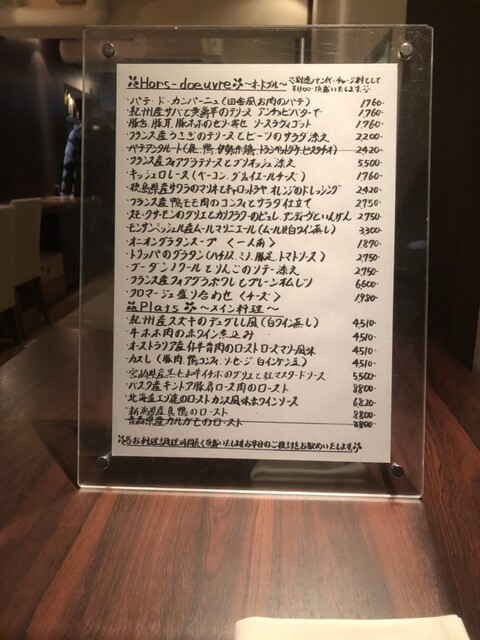 Hors-doeuvre 〜オードブル〜 ※別途パン代、チャージ料として
¥1100頂戴いたします
・パテ・ド・カンパーニュ(田舎風お肉のパテ) 1760
・紀州産サバと のテリーヌ アンチョビバターで 1,760
・豚舌、豚耳、豚ホホのゼリー寄せ ソースラヴィゴット 1,760
・フランス産うさぎのテリーヌとビーツのサラダ添え 2200
・パテアンクルート( 鴨、伊勢赤鶏、トランペットタケ、ピスタチオ) 2420
・フランス産フォアグラテリーヌとブリオッシュ添え 5,500
・キッシュロレーヌ(ベーコン、グリュイエールチーズ) 1760
・ 産サワラのマリネとキャロットラペ、オレンジのドレッシング 2420
・フランス産鴨モモ肉のコンフィとサラダ仕立て 2,750
・スモークサーモンのグリエとカリフラワーのピュレ、アンディーブといんげん 2,750
・モンサンミッシェル産ムールマリニエール(ムール貝白ワイン蒸し) 3300
・オニオングラタンスープ <一人前> 1,870
・トリッパのグラタン(ハチノス、ミノ、豚足、トマトソース) 2,750
・ブーダンノワールとりんごのソテー添え 2750
・フランス産フォアグラポワレとプレーンオムレツ 6600
・フロマージュ盛り合わせ <チーズ> 1980
Plats 〜メイン料理〜
・紀州産スズキのデュグレレ風(白ワイン蒸し) 4,510
・牛ホホ肉の赤ワイン煮込み 4,510
・オーストラリア産仔羊背肉のロースト ローズマリー風味 4,510
・カスレ(豚肉、鴨コンフィ、ソーセージ、白インゲン豆) 4,510
・宮崎県産 牛イチボのグリエと粒マスタードソース 5,500
・バスク産キントア豚肩ロース肉のロースト 8800
・北海道エゾ鹿のロースト カシス風味赤ワインソース 6820
・新潟県産真鴨のロースト 8800
・青森県産カルガモのロースト 8800
※お料理、調理時間長く頂戴いたします お早目のご注文をお勧めいたします